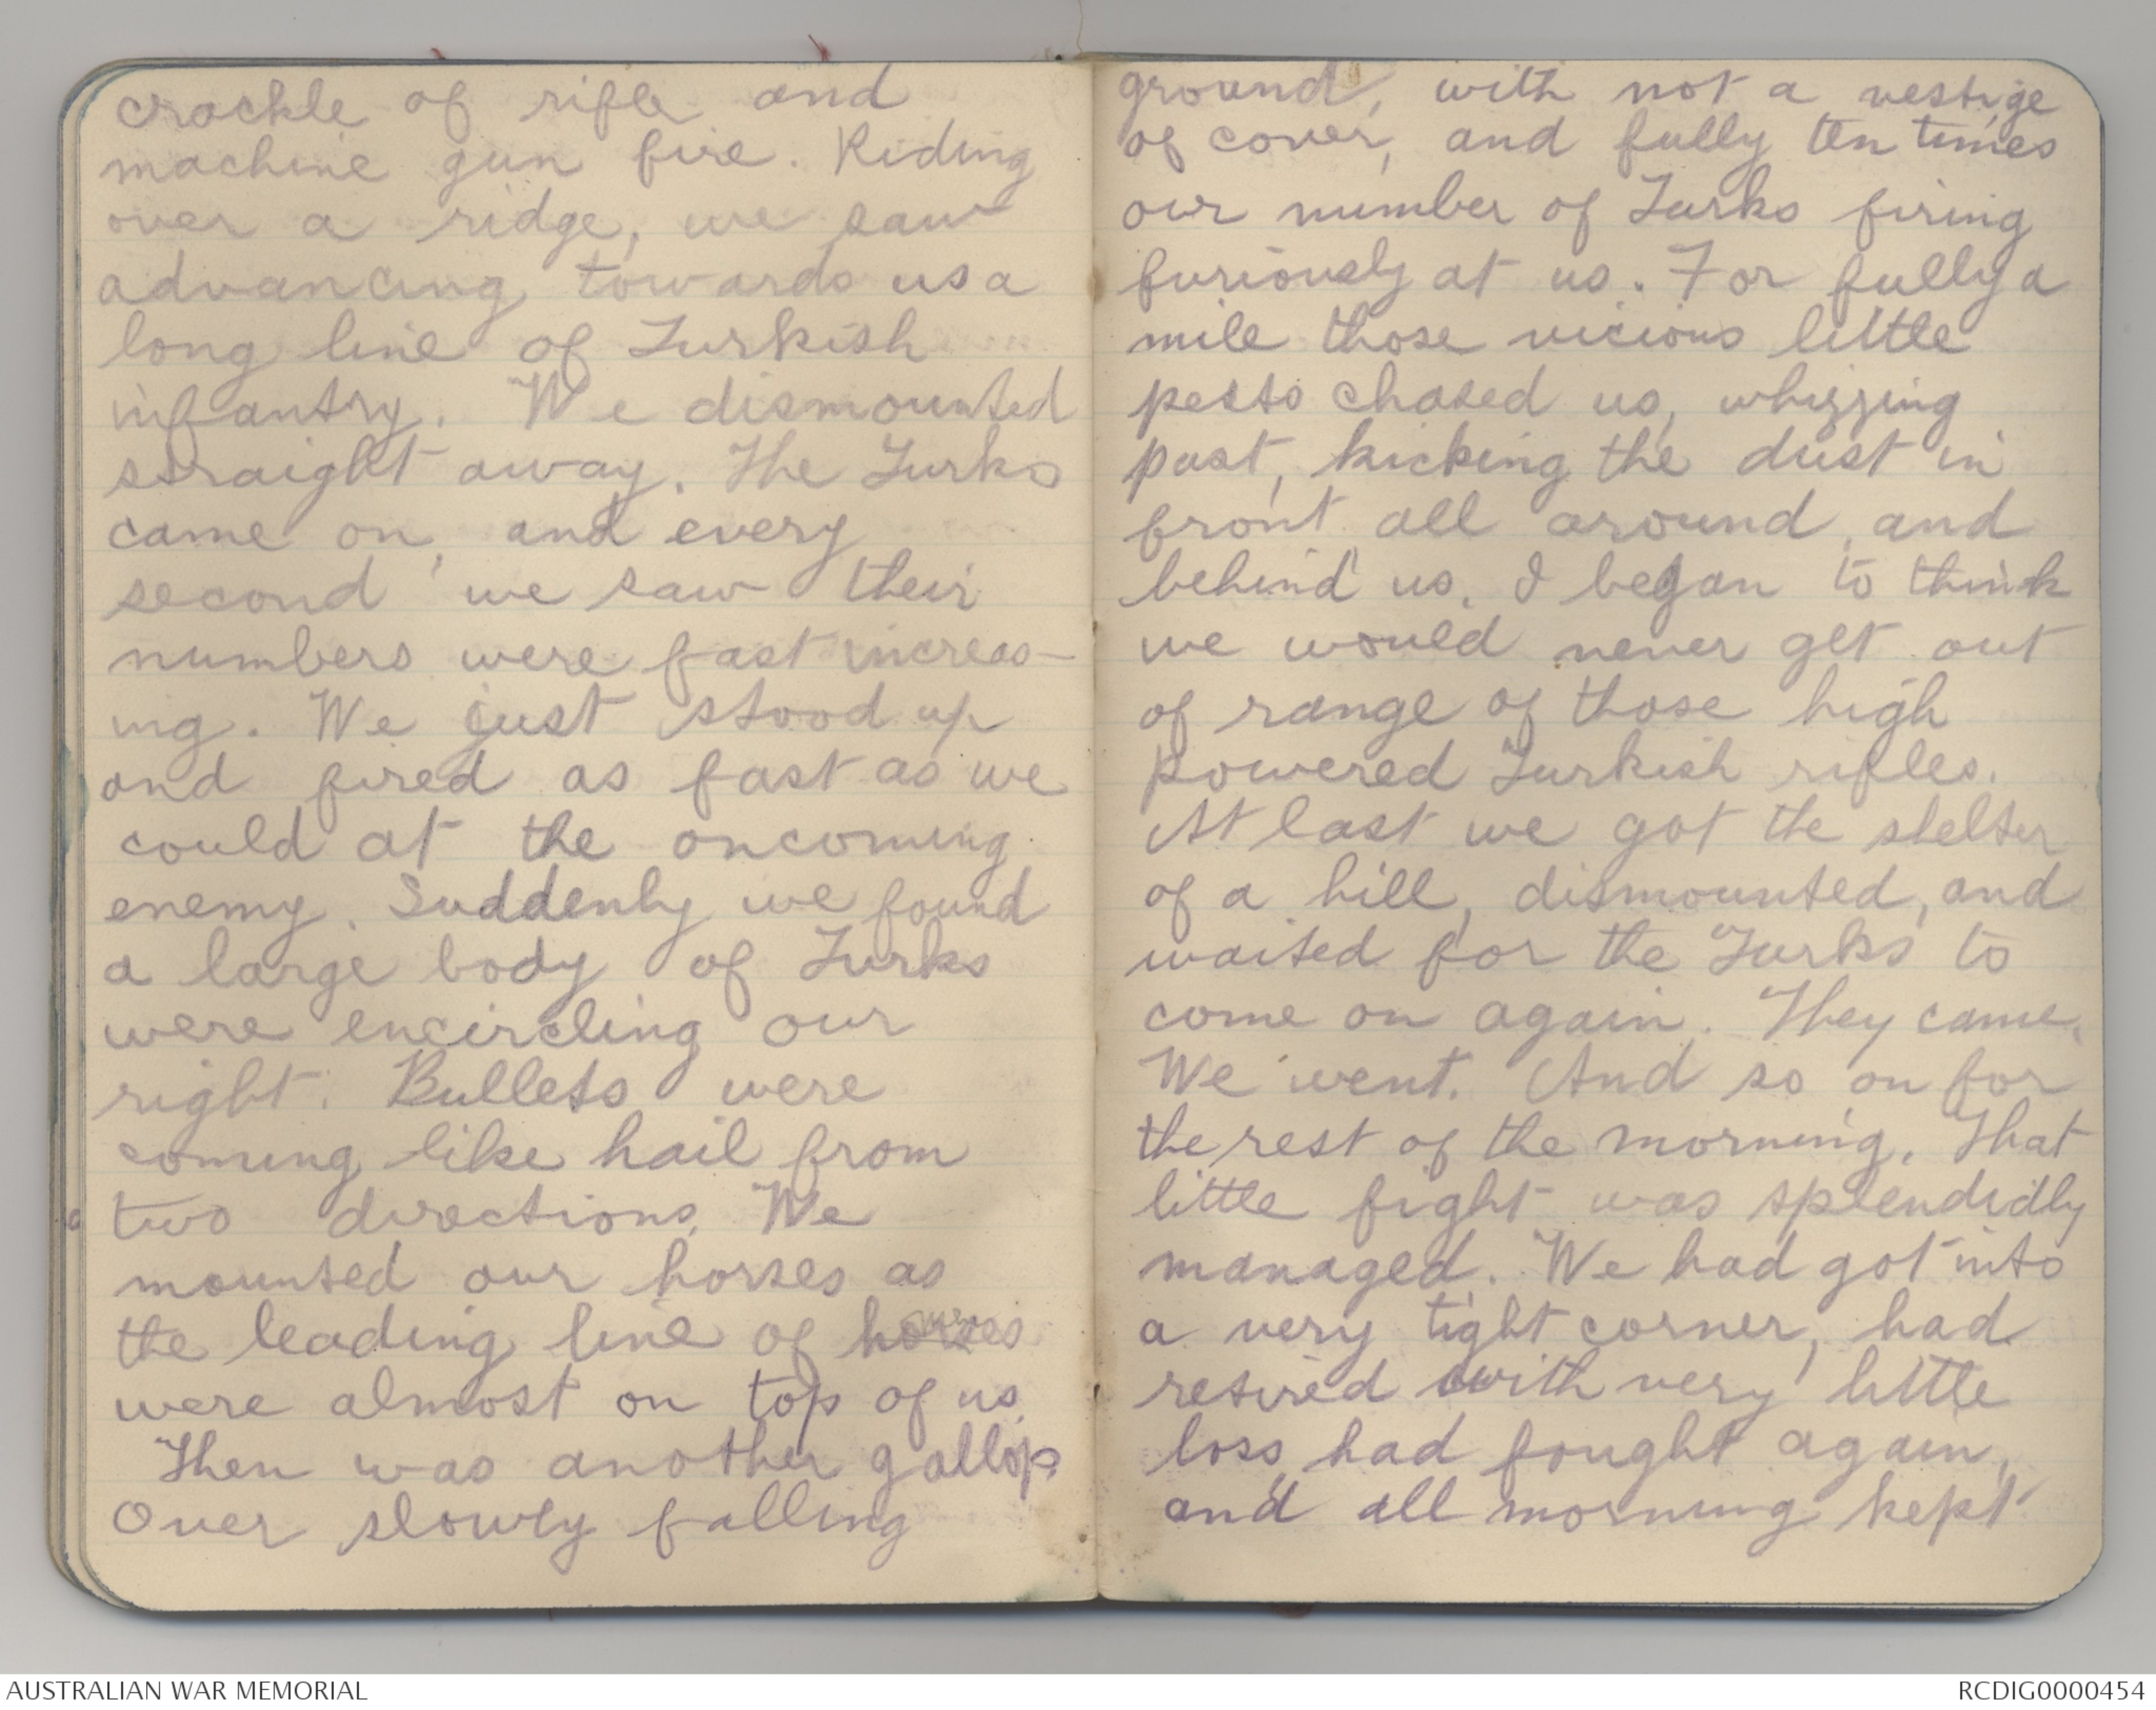 crackle of rifle and
machine gun fire. Riding
over a ridge, we saw
advancing towards us a
long line of Turkish
infantry. We dismounted
straight away. The Turks
came on, and every
second we saw their
numbers were fast increas-
ing. We just stood up
and fired as fast as we
could at the oncoming
enemy. Suddenly we found
a large body of Turks
were encircling our
right. Bullets were
coming like hail from
two directions. We
mounted our horses as
the leading line of
were almost on top of us.
Then was another gallop
Over slowly falling
ground, with not a vestige
of cover, and fully ten times
our number of Turks firing
furiously at us. For fully a
mile those vicious little
pests chased us, whizzing
past, kicking the dust in
front all around, and
behind us. I began to think
we would never get out
of range of those high
powered Turkish rifles.
At last we got the shelter
of a hill, dismounted, and
waited for the Turks to
come on again. They came.
We went. And so on for
the rest of the morning. That
little fight was splendidly
managed. We had got into
a very tight corner, had
retired with very little
loss, had fought again,
and all morning kept
AUSTRALIAN WAR MEMORIAL
RCDIG0000454